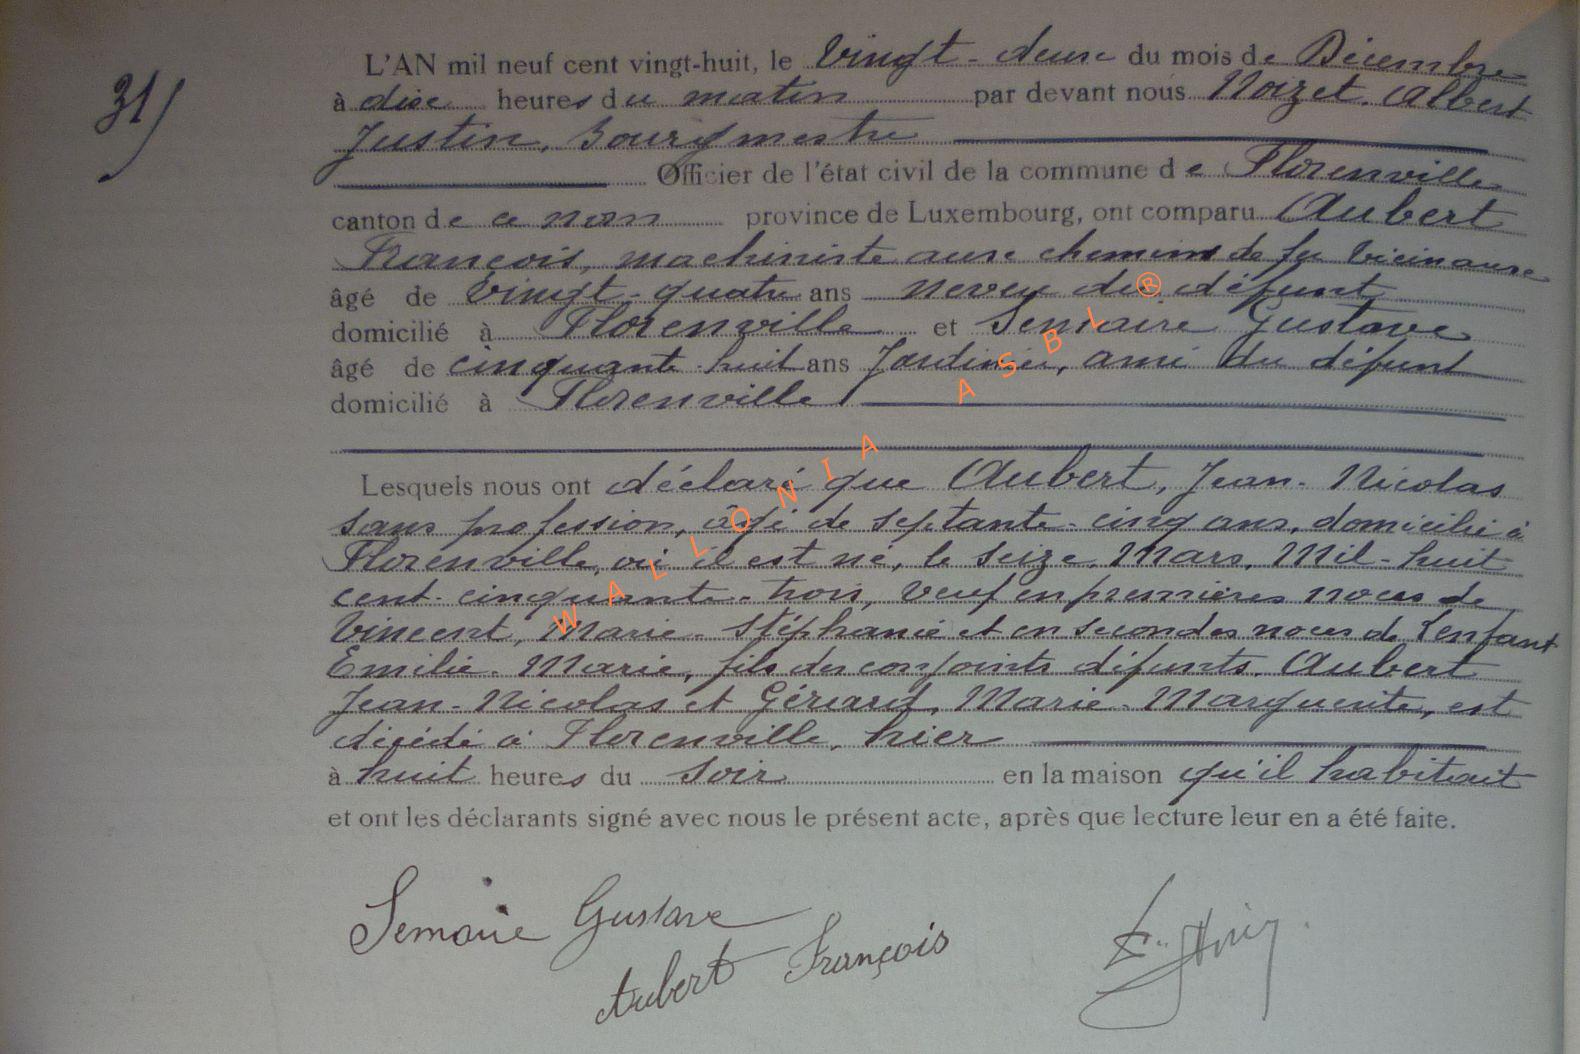 31/
L'AN mil neuf cent vingt-huit, le Vingt-deux du mois de Décembre
à dix heures du matin par devant nous Noizet, Albert
Justin, Bourgmestre
Officier de l'état civil de la commune de Florenville
canton de ce nom province de Luxembourg, ont comparu Aubert
François, machiniste aux chemins de fer Vicinaux
âgé de Vingt-quatre ans neveu du défunt
domicilié à Florenville et Semaire Gustave
âgé de cinquante-huit ans Jardinier, ami du défunt
domicilié à Florenville
Lesquels nous ont déclaré que Aubert, Jean-Nicolas
sans profession, âgé de septante-cinq ans, domicilié à
Florenville, où il est né, le seize Mars, Mil-huit
cent-cinquante-trois, Veuf en premières noces de
Vincent, Marie-Stéphanie et en secondes noces de Lenfant
Emilie-Marie, fils des conjoints défunts, Aubert
Jean-Nicolas et Gérard, Marie-Marguerite, est
décédé à Florenville, hier
à huit heures du soir en la maison qu'il habitait
et ont les déclarants signé avec nous le présent acte, après que lecture leur en a été faite.
Semaire Gustave
Aubert François
WALLONIA ASBL ®